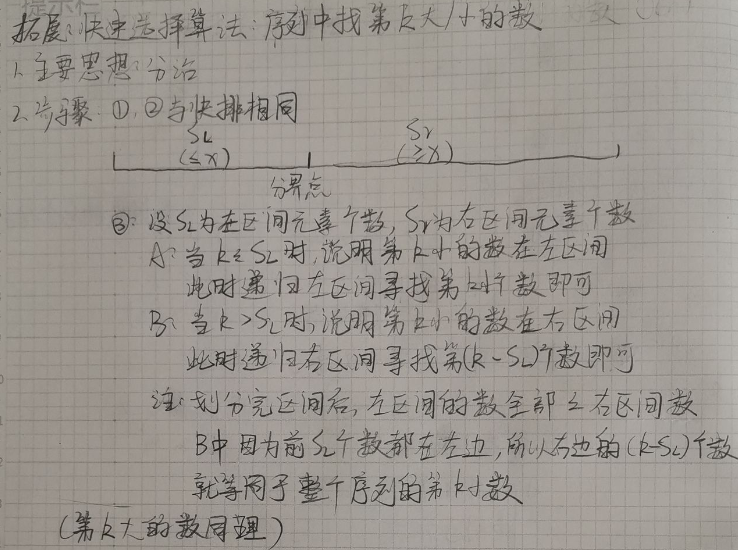 拓展:快速选择算法:序列中找第k大/小的数
1、主要思想:分治
2、步骤:①,②与快排相同
SL Sr
(≤X) (≥X)
分界点
③:设SL为左区间元素个数,Sr为右区间元素个数
A:当k≤SL时,说明第k小的数在左区间
此时递归左区间寻找第k小个数即可
B:当k>SL时,说明第k小的数在右区间
此时递归右区间寻找第(k-SL)个数即可
注:划分完区间后,左区间的数全部≤右区间数
B中因为前SL个数都在左边,所以右边的(k-SL)个数
就等同于整个序列的第k小数
(第k大的数同理)